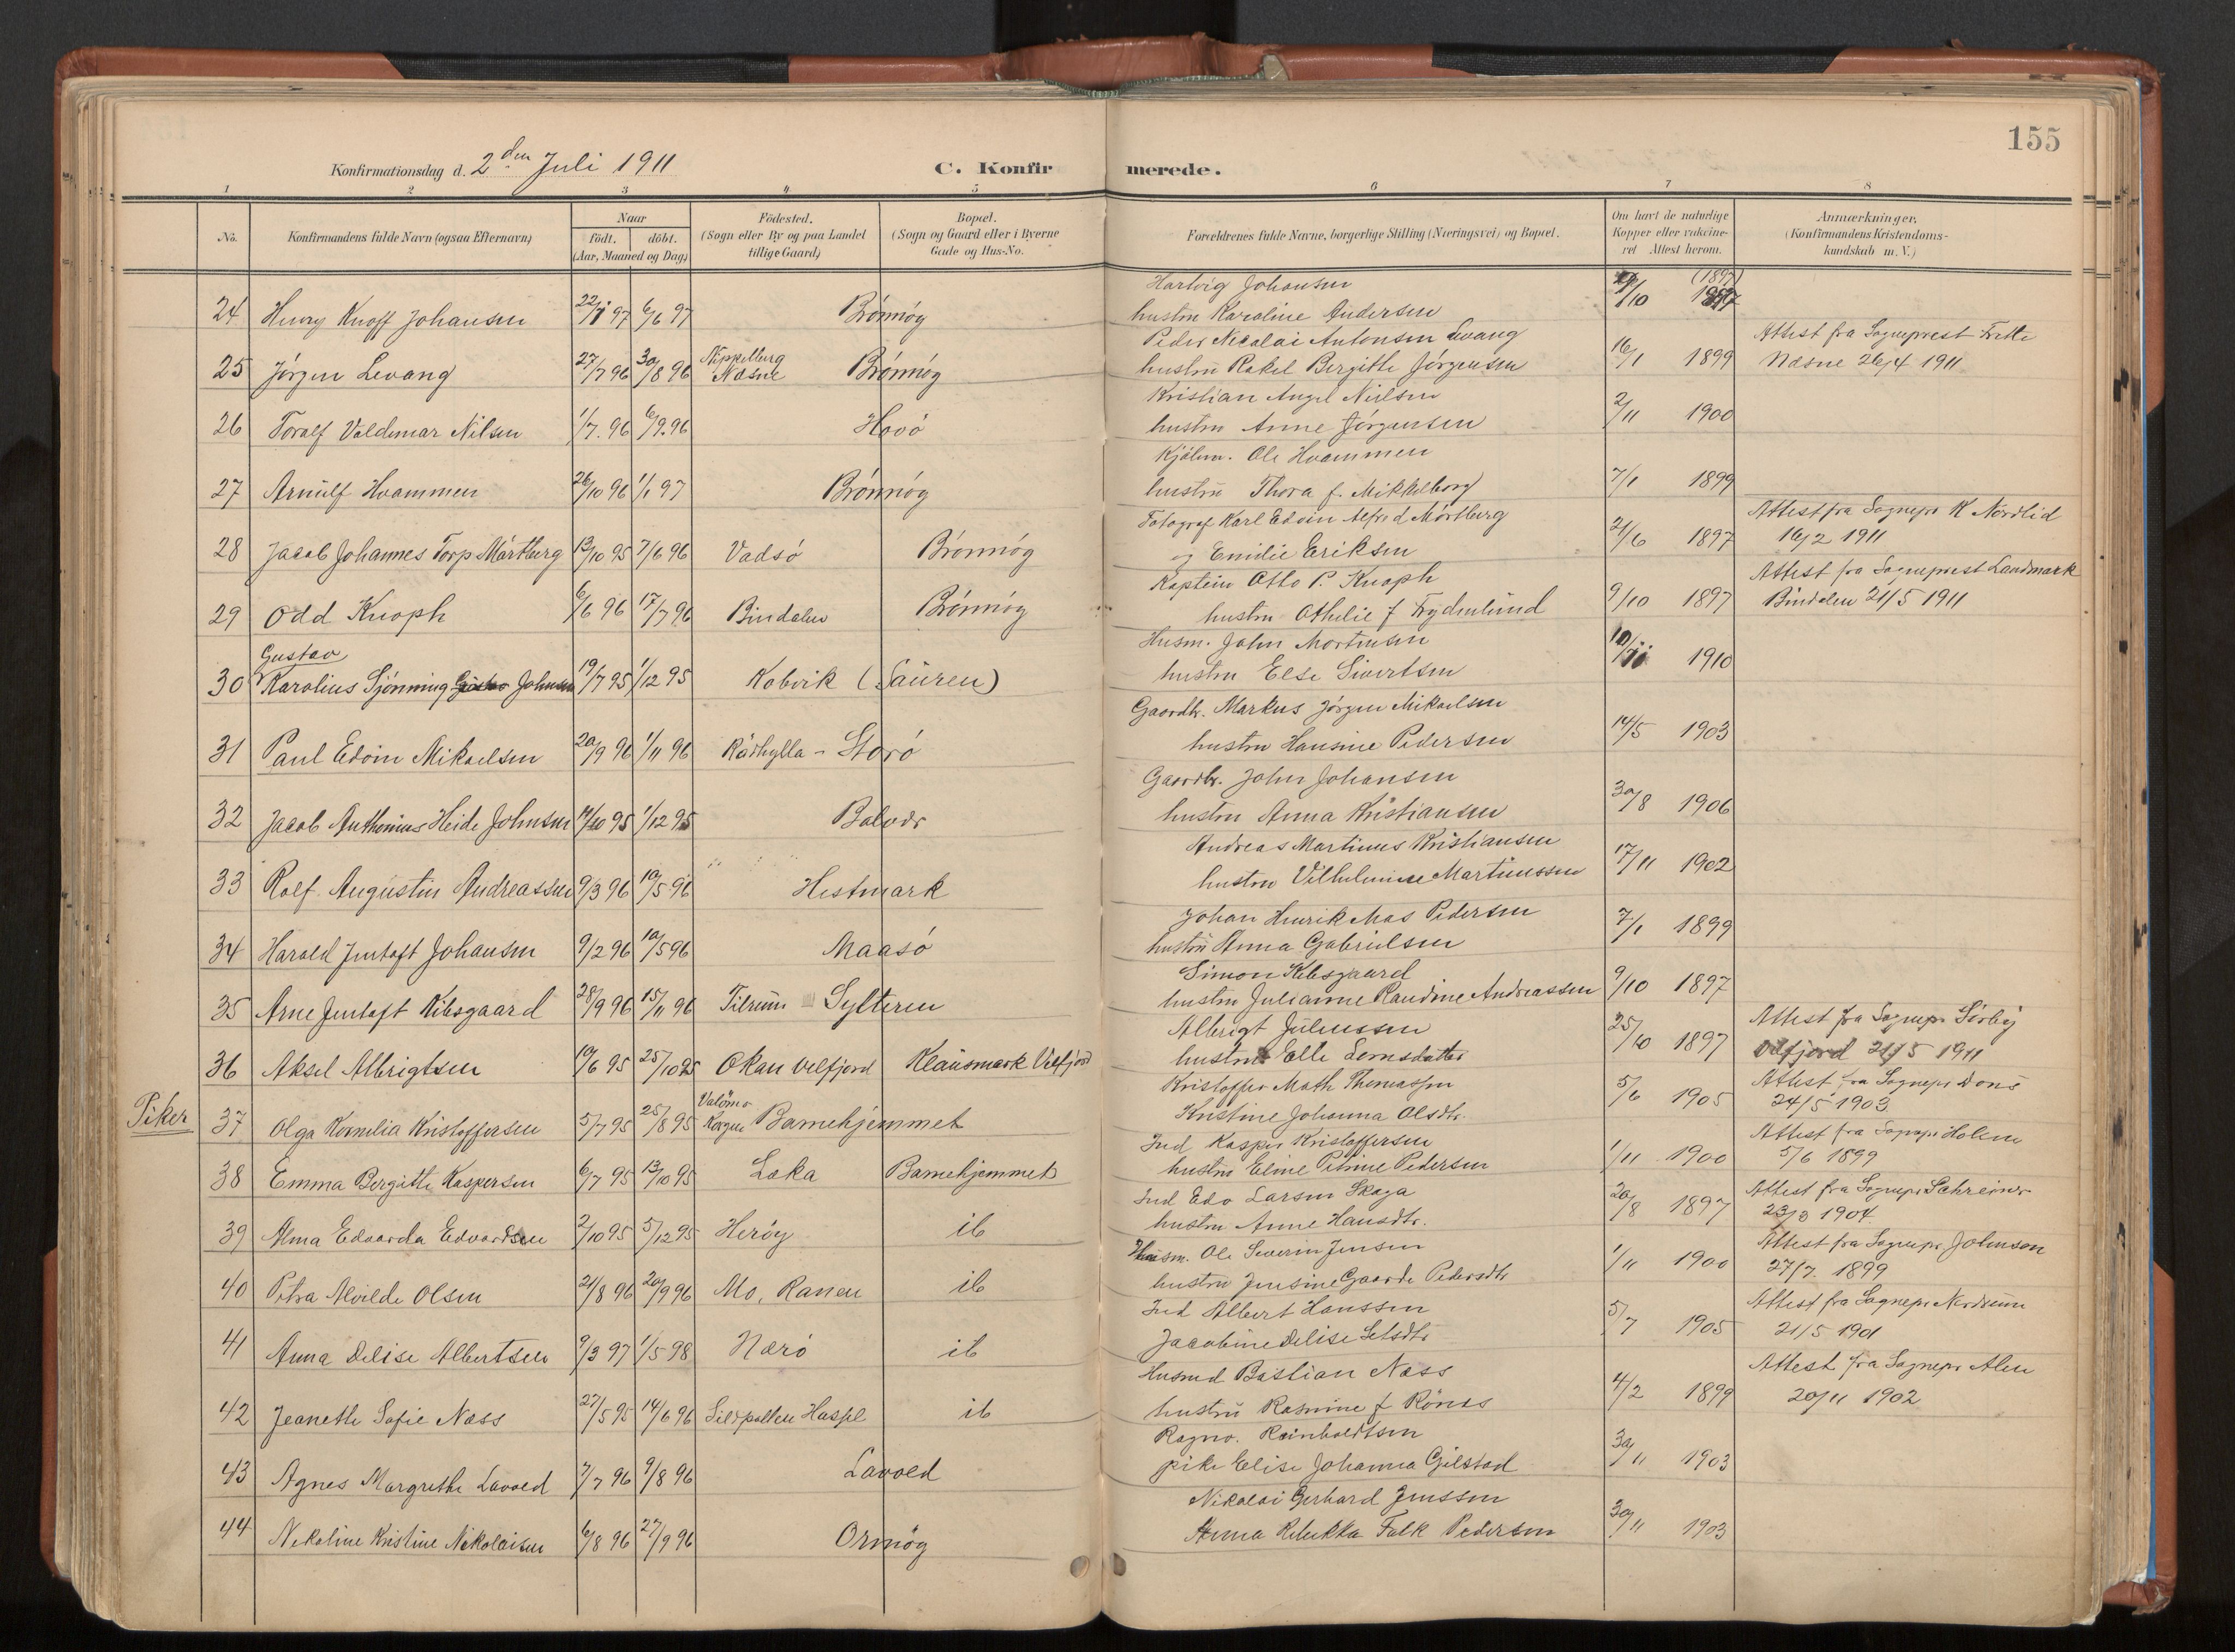 155
Konfirmationsdag d. 2den Juli 1911 C. Konfirmerede.
1 2 3 4 5 6 7 8
No. Konfirmandens fulde Navn (ogsaa Efternavn) Naar födt. döbt. (Aar, Maaned og Dag) Födested. (Sogn eller By og paa Landet tillige Gaard) Bopæl. (Sogn og Gaard eller i Byerne Gade og Hus-No. Forældrenes fulde Navne, borgerlige Stilling (Næringsvei) og Bopæl. Om havt de naturlige Kopper eller vakcineret Attest herom. Anmærkninger. (Konfirmandens Kristendomskundskab m. V.)
Hartvig Johansen (1897)
24 Henry Knoff Johansen 22/1 97 6/6 97 Brönnög hustru Karoline Andersen /10
Peder Nicolai Antonsen Levang Attest fra Sogneprest
25 Jörgen Levang 27/7 96 30/8 96 Nesne Brönnög hustru Rakel Bergitte Jörgensen 16/1 1899 Næsne 26/4 1911
Kristian Angel Nielsen
26 Toralf Valdemar Nilsen 1/7. 96 6/9. 96 Havö hustru Anne Jörgensen 2/11 1900
Kjöbm. Ole Hvammen
27 Arnulf Hvammen 26/10 96 1/1 97 Brönnög hustru Thora f. Mikkelborg 7/1 1899
Fotograf Karl Edvin Alfred Mörtberg Attest fra Sognepr K Nordlid
28 Jacob Johannes Torp Mörtberg 13/10 95 7/6 96 Vadsö Brönnög og Emilie Eriksen 21/6 1897 16/2 1911
Kaptein Otto P. Knoph Attest fra Sogneprest Landmark
29 Odd Knoph 6/6 96 17/7 96 Bindalen Brönnög hustru Othilie f Frydenlund 9/10 1897 Bindalen 21/5 1911
Gustav Husm. John Mortensen
30 Karolius Sjönning Johnsen 19/7 95 1/12 95 Kobvik (Sauren) hustru Else Sivertsen 1910
Gaardbr. Markus Jörgen Mikaelsen
31 Paul Edvin Mikaelsen 20/9 96 1/11 96 Rödhylla - Storö hustru Hansine Pedersen 14/5 1903
Gaardbr. John Johansen
32 Jacob Anthonius Heide Johnsen /10 95 1/12 95 hustru Anna Kristiansen 30/8 1906
Andreas Martinus Kristiansen
33 Rolf Augustin Andreassen 9/3 96 10/5 96 Hestmark hustru Vilhelmine Martinussen 17/11 1902
Johan Henrik Mos Pedersen
34 Harald Jentoft Johansen 9/2 96 10/5 96 Maasö hustru Anna Gabrielsen 7/1 1899
Simon Kibsgaard
35 Arne Jentoft Kibsgaard 28/9 96 15/11 96 Tilrum Sylteren hustru Julianne Raudine Andreassen 9/10 1897
Albrigt Juliussen Attest fra Sognepr Sörby
36 Aksel Albrigtsen 19/6 95 25/10 95 Okan Velfjord Klausmark Velfjord hustru Elle Lornsdatter 25/10 1897 Velfjord 21/5 1911
Kristoffer Math Thomassen Attest fra Sognepr Dons
Piker 37 Olga Kornelia Kristoffersen 5/7 95 25/8 95 Korgen Barnehjemmet Kristine Johanna Olsdtr. 5/6 1905 24/5 1903
Ind Kasper Kristoffersen Attest fra Sognepr Holem
38 Emma Bergitte Kaspersen 6/7 95 13/10 95 Leka Barnehjemmet hustru Eline Petrine Pedersen 1/11 1900 5/6 1899
Ind Edv Larsen Skaga Attest fra Sognepr Schreiner
39 Alma Edvarda Edvardsen 2/10 95 5/12 95 Heröy ib hustru Anne Hansdtr. 20/8 1897 23/3 1904
Husm. Ole Severin Jensen Attest fra Sognepr Johnson
40 Petra Alvilde Olsen 21/8 96 20/9 96 Mo, Ranen ib hustru Jensine Gaarde Pedersdtr 1/11 1900 27/7. 1899
Ind Albert Hanssen Attest fra Sognepr Nordrum
41 Anna Delise Albertsen 9/3 97 1/5 98 Nærö ib Jacobine Delise 5/7 1905 21/5 1901
Husmd Bastian Næss Attest fra Sognepr Alen
42 Jeanette Sofie Næss 27/5 95 14/6 96 Sildpollen Hassel ib hustru Rasmine f Rönes 4/2 1899 20/11 1902
Ragnv. Reinholdtsen
43 Agnes Margrethe Lavold 7/7 96 9/8 96 Lavold pike Elise Johanna Gilstad 30/11 1903
Nikolai Gerhard Jenssen
44 Nikoline Kristine Nikolaisen 6/8 96 27/9 96 Ormög Anna Rebekka Falk Pedersen 30/11 1903